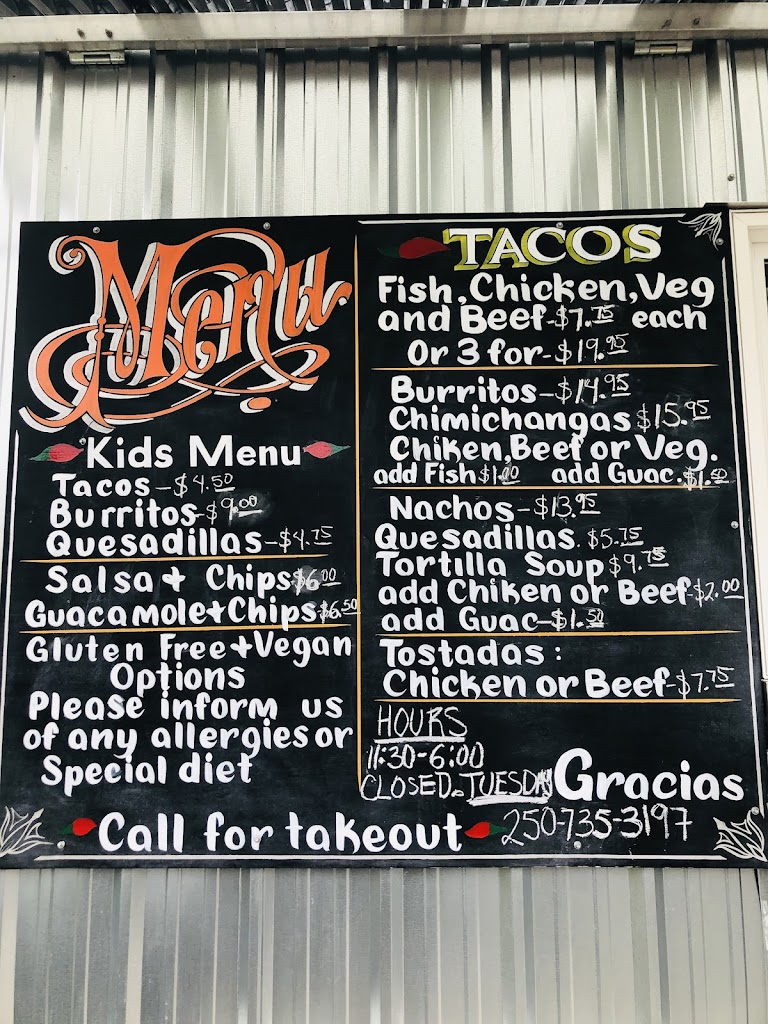 Menu
Kids Menu
Tacos-$4.50
Burritos-$9.00
Quesadillas-$4.75
Salsa + Chips $6.00
Guacamole+Chips $6.50
Gluten Free+Vegan
Options
Please inform us
of any allergies or
Special diet
TACOS
Fish, Chicken, Veg
and Beef-$7.75 each
Or 3 for-$19.95
Burritos-$14.95
Chimichangas $15.95
Chiken, Beef or Veg.
add Fish $1.00 add Guac. $1.50
Nachos-$13.95
Quesadillas. $5.75
Tortilla Soup $9.75
add Chiken or Beef-$2.00
add Guac-$1.50
Tostadas:
Chicken or Beef-$7.75
HOURS
11:30-6:00
CLOSED. TUESDAY
Gracias
Call for takeout 250-735-3197